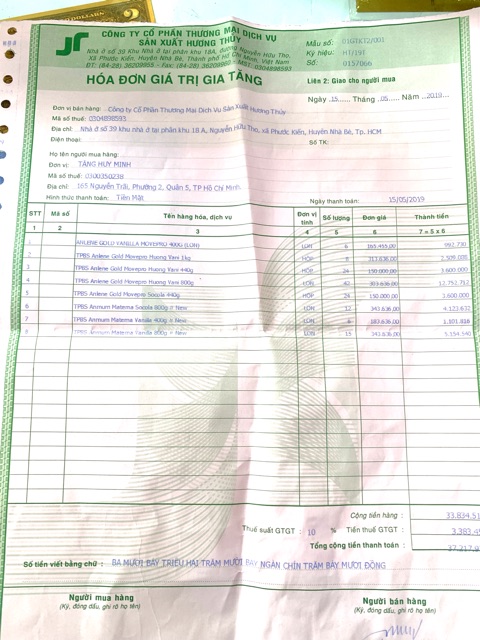 CÔNG TY CỔ PHẦN THƯƠNG MẠI DỊCH VỤ
SẢN XUẤT HƯƠNG THỦY
Nhà ở số 39 Khu Nhà ở tại phân khu 18A, đường Nguyễn Hữu Thọ,
Xã Phước Kiển, Huyện Nhà Bè, Thành phố Hồ Chí Minh, Việt Nam
ĐT: (84-28) 36209855 - Fax: (84-28) MST: 0304898593
Mẫu số: 01GTKT2/001
Ký hiệu: HT/19T
Số: 0157066
HÓA ĐƠN GIÁ TRỊ GIA TĂNG
Liên 2: Giao cho người mua
Ngày 15 Tháng 05 Năm 2019
Đơn vị bán hàng: Công ty Cổ Phần Thương Mại Dịch Vụ Sản Xuất Hương Thủy
Mã số thuế: 0304898593
Địa chỉ: Nhà ở số 39 khu nhà ở tại phân khu 18 A, Nguyễn Hữu Thọ, xã Phước Kiển, Huyện Nhà Bè, Tp. HCM
Điện thoại: Số TK:
Họ tên người mua hàng:
Đơn vị: TĂNG HUY MINH
Mã số thuế: 0300350239
Địa chỉ: 165 Nguyễn Trãi, Phường 2, Quận 5, TP Hồ Chí Minh.
Hình thức thanh toán: Tiền Mặt Ngày thanh toán: 15/05/2019
STT Mã số Tên hàng hóa, dịch vụ Đơn vị tính Số lượng Đơn giá Thành tiền
1 2 3 4 5 6 7 = 5 x 6
1 ANLENE GOLD VANILLA MOVEPRO 400G (LON) LON 6 165.455,00 992.730
2 TPBS Anlene Gold Movepro Hương Vani 1kg HỘP 8 313.636,00 2.509.088
3 TPBS Anlene Gold Movepro Hương Vani 440g HỘP 24 150.000,00 3.600.000
4 TPBS Anlene Gold Movepro Hương Vani 800g LON 42 303.636,00 12.752.712
5 TPBS Anlene Gold Movepro Socula 440g HỘP 24 150.000,00 3.600.000
6 TPBS Anmum Materna Socula 800g New LON 12 343.636,00 4.123.632
7 TPBS Anmum Materna Vanilla 400g New LON 6 183.636,00 1.101.816
8 TPBS Anmum Materna Vanilla 800g New LON 15 343.636,00 5.154.540
Cộng tiền hàng : 33.834.51
Thuế suất GTGT : 10 % Tiền thuế GTGT : 3.383.45
Tổng cộng tiền thanh toán : 37.217.9
Số tiền viết bằng chữ : BA MƯƠI BẢY TRIỆU HAI TRĂM MƯỜI BẢY NGÀN CHÍN TRĂM BẢY MƯƠI ĐỒNG
Người mua hàng Người bán hàng
(Ký, đóng dấu, ghi rõ họ tên) (Ký, đóng dấu, ghi rõ họ tên)